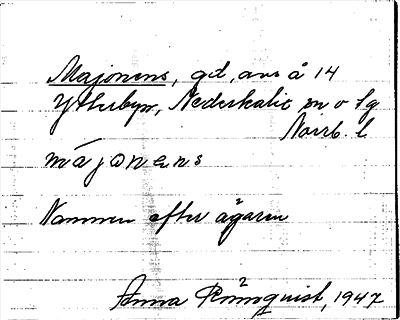 Majonens, gd, avs å 14
Ytterbyn, Nederkalix sn o tg
Norrb. l
májɷnens
Namnen efter ägaren
Anna Rönnquist, 1947